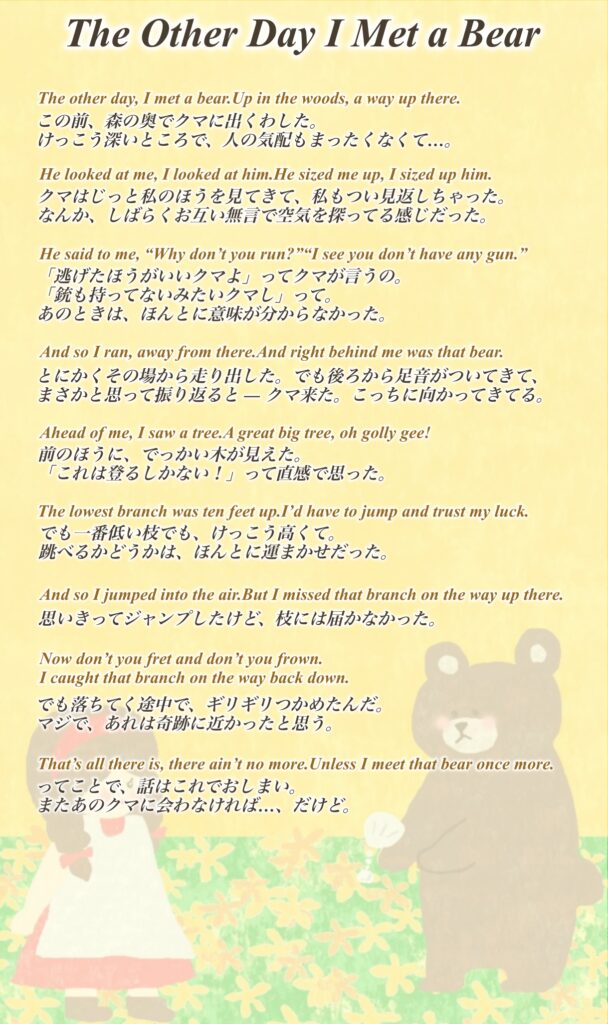 The Other Day I Met a Bear
The other day, I met a bear.Up in the woods, a way up there.
この前、森の奥でクマに出くわした。
けっこう深いところで、人の気配もまったくなくて…。
He looked at me, I looked at him.He sized me up, I sized up him.
クマはじっと私のほうを見てきて、私もつい見返しちゃった。
なんか、しばらくお互い無言で空気を探ってる感じだった。
He said to me, “Why don’t you run?”“I see you don’t have any gun.”
「逃げたほうがいいクマよ」ってクマが言うの。
「銃も持ってないみたいクマし」って。
あのときは、ほんとに意味が分からなかった。
And so I ran, away from there.And right behind me was that bear.
とにかくその場から走り出した。でも後ろから足音がついてきて、
まさかと思って振り返ると — クマ来た。こっちに向かってきてる。
Ahead of me, I saw a tree.A great big tree, oh golly gee!
前のほうに、でっかい木が見えた。
「これは登るしかない！」って直感で思った。
The lowest branch was ten feet up.I’d have to jump and trust my luck.
でも一番低い枝でも、けっこう高くて。
跳べるかどうかは、ほんとに運まかせだった。
And so I jumped into the air.But I missed that branch on the way up there.
思いきってジャンプしたけど、枝には届かなかった。
Now don’t you fret and don’t you frown.
I caught that branch on the way back down.
でも落ちてく途中で、ギリギリつかめたんだ。
マジで、あれは奇跡に近かったと思う。
That’s all there is, there ain’t no more.Unless I meet that bear once more.
ってことで、話はこれでおしまい。
またあのクマに会わなければ…、だけど。